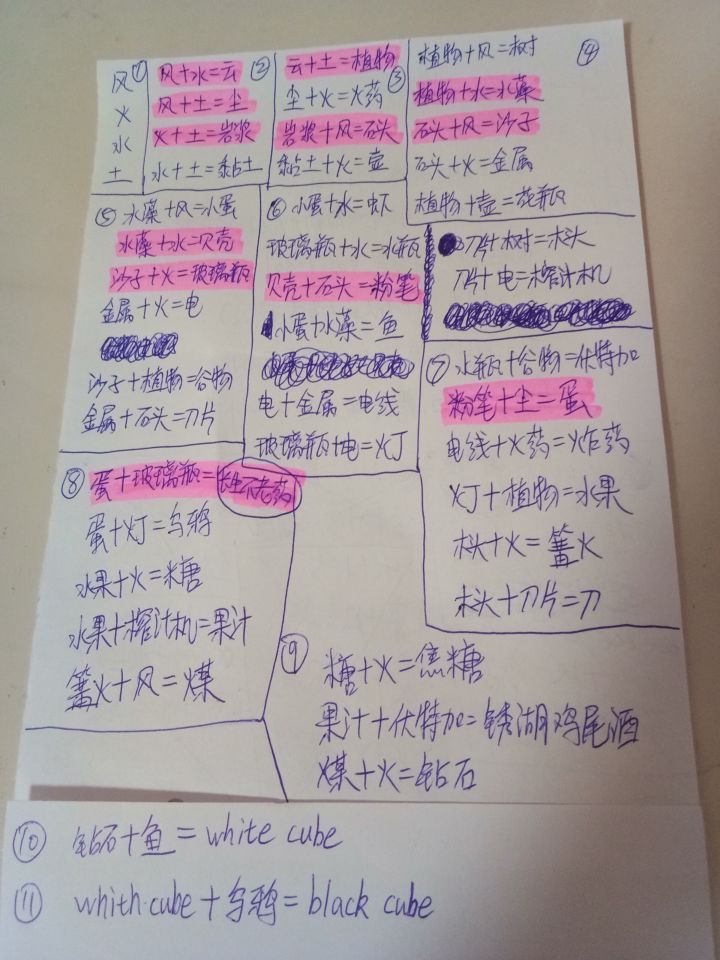 ①
风
火
水
土
风+水=云
风+土=尘
火+土=岩浆
水+土=黏土
②
云+土=植物
尘+火=火药
岩浆+风=石头
黏土+火=壶
③
植物+风=树
植物+水=水藻
石头+风=沙子
石头+火=金属
植物+壶=花瓶
④
⑤ 水藻+风=小蛋
水藻+水=贝壳
沙子+火=玻璃瓶
金属+火=电
沙子+植物=谷物
金属+石头=刀片
⑥ 小蛋+水=虾
玻璃瓶+水=水瓶
贝壳+石头=粉笔
小蛋+水藻=鱼
电+金属=电线
玻璃瓶+电=灯
刀片+树=木头
刀片+电=榨汁机
⑦ 水瓶+谷物=伏特加
粉笔+尘=蛋
电线+火药=炸药
灯+植物=水果
木头+火=篝火
木头+刀片=刀
⑧ 蛋+玻璃瓶=长生不老药
蛋+灯=乌鸦
水果+火=糖
水果+榨汁机=果汁
篝火+风=煤
⑨ 糖+火=焦糖
果汁+伏特加=锈湖鸡尾酒
煤+火=钻石
⑩ 钻石+鱼=white cube
⑪ whith cube+乌鸦=black cube